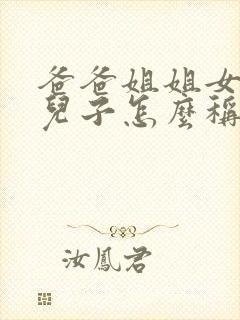 爸爸姐姐女
兒子怎麼稱
汝鳳君